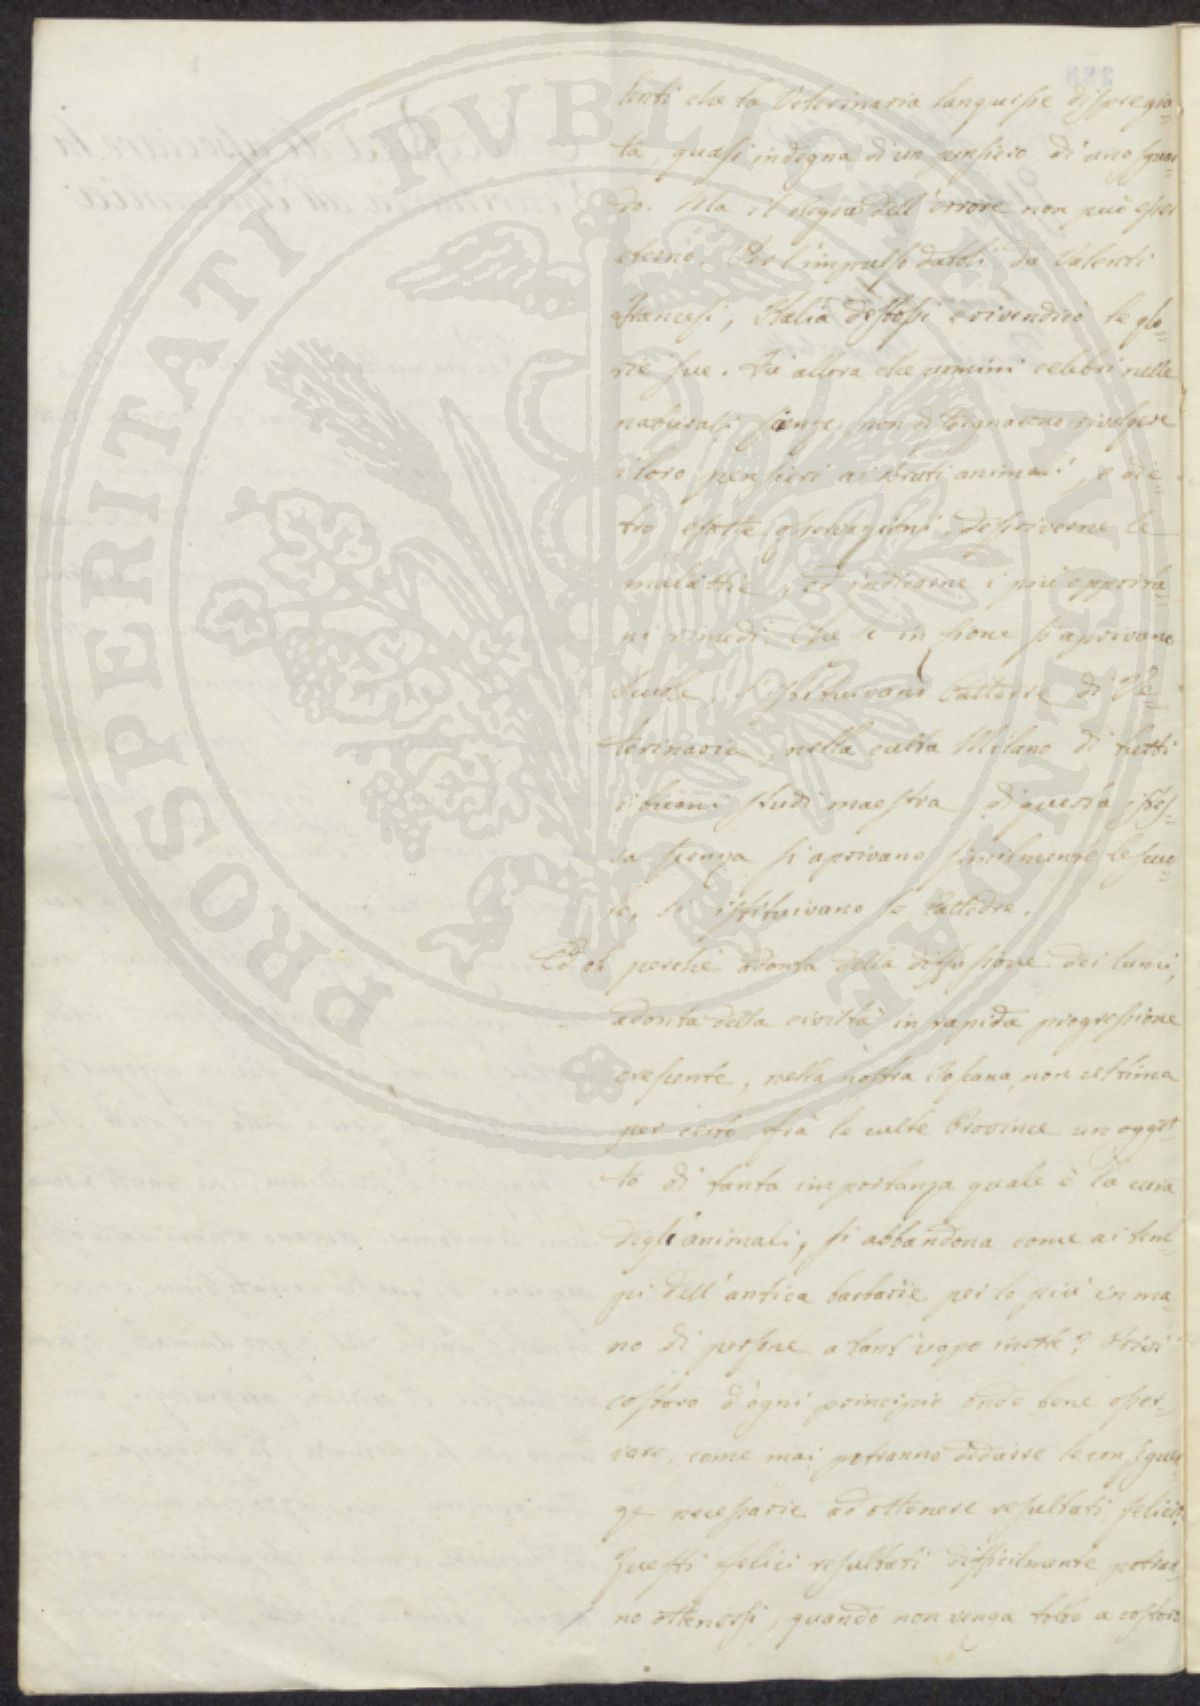 tenti che la Veterinaria languisse dispregia=
ta, quasi indegna di un pensiero, di uno sguar=
do. Ma il regno dell'errore non può esser
eterno. Per l'impulso datoli da valenti
Francesi, Italia destossi e rivendicò le glo=
rie sue. Fù allora che uomini celebri nelle
naturali scienze, non disdegnarono rivolgere
i loro pensieri ai bruti animali, e die=
tro esatte osservazioni descriverne le
malattie, ed indicarne i più opportu=
ni rimedi. Che se in Lione si aprivano
Scuole, s'istituivano Cattedre di Ve=
terinaria, nella culta Milano di tutti
i buoni studi maestra, di questa istes=
sa scienza si aprivano similmente le scuo=
le, si istituivano le Cattedre.
Ed oh perchè adonta della diffusione dei lumi,
adonta della civiltà in rapida progressione
crescente, nella nostra Toscana, non ultima
per certo frà le culte Province un ogget=
to di tanta importanza quale è la cura
degli animali, si abbandona come ai tem=
pi dell'antica barbarie per lo più in ma=
no di persone a tant'uopo inette? Privi
costoro d'ogni principio onde bene osser=
vare, come mai potranno dedurre le conseguen=
ze necessarie ad ottenere resultati felici?
Questi felici resultati difficilmente potran=
no ottenersi, quando non venga tolto a costoro
PROSPERITATI PUBLICAE AUGENDAE